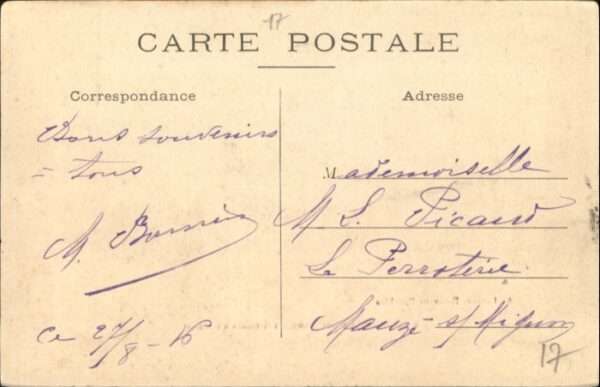 17
CARTE POSTALE
Correspondance
Bons souvenirs
= tous
ce 27/8 - 16
Adresse
Mademoiselle
M L. Picaud
La
Mauzé s/ Mignon
17